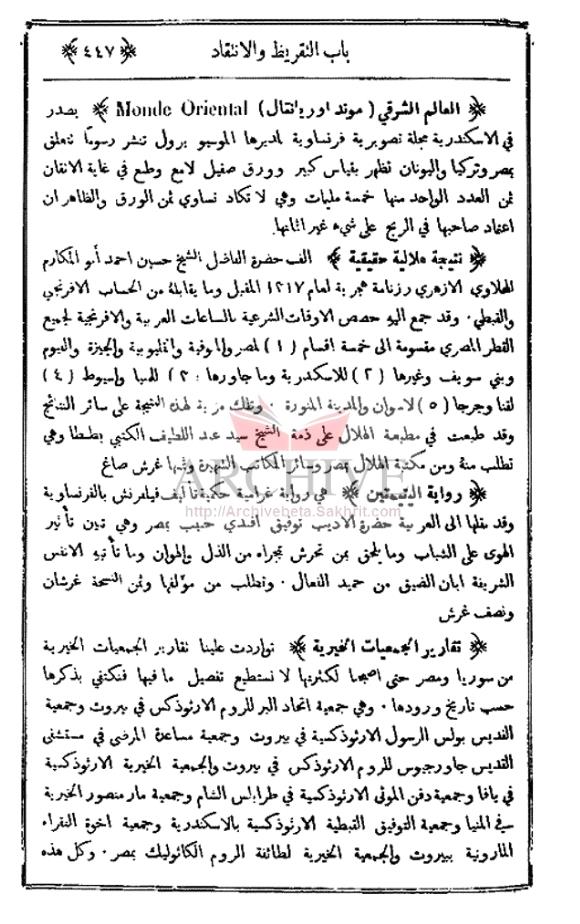 باب التقريظ والانتقاد
﴿ ٤٤٧ ﴾
﴿ العالم الشرقي ( موند اوريانتال ) Monde Oriental ﴾ يصدر
في الاسكندرية مجلة تصويرية فرنساوية لمديرها الموسيو برول تنشر رسوماً تتعلق
بمصر وتركيا واليونان تظهر بقياس كبير وورق صقيل لامع وطبع في غاية الاتقان
ثمن العدد الواحد منها خمسة مليات وهي لا تكاد تساوي ثمن الورق والظاهر ان
اعتماد صاحبها في الربح على شيء غير اثمانها.
﴿ نتيجة هلالية حقيقية ﴾ الف حضرة الفاضل الشيخ حسين احمد أبو المكارم
الحلاوي الازهري رزنامة هجرية لعام ١٣١٧ المقبل وما يقابله من الحساب الافرنجي
والقبطي ٠ وقد جمع اليه حصص الاوقات الشرعية بالساعات العربية والافرنجية لجميع
القطر المصري مقسومة الى خمسة اقسام ( ١ ) لمصر والمنوفية والقليوبية والجيزة والفيوم
وبني سويف وغيرها ( ٢ ) للاسكندرية وما جاورها ( ٣ ) للمنيا واسيوط ( ٤ )
لقنا وجرجا ( ٥ ) لاسوان والمدينة المنورة ٠ وتلك مزية لهذه النتيجة على سائر النتائج
وقد طبعت في مطبعة الهلال على ذمة الشيخ سيد عبد اللطيف الكتبي بطنطا وهي
تطلب منهُ ومن مكتبة الهلال بمصر وسائر المكاتب الشهيرة وثمنها غرش صاغ
﴿ رواية اليتيمتين ﴾ هي رواية غرامية حكمية تأليف فيلمرنش بالفرنساوية
وقد نقلها الى العربية حضرة الاديب توفيق افندي حبيب بمصر وهي تبين تأثير
الهوى على الشباب وما يلحق بمن تحرش بمجراه من الذل والهوان وما تأتيهِ الانفس
الشريفة ابان الضيق من حميد الفعال ٠ وتطلب من مؤلفها وثمن النسخة غرشان
ونصف غرش
﴿ تقارير الجمعيات الخيرية ﴾ تواردت علينا تقارير الجمعيات الخيرية
من سوريا ومصر حتى اصبحنا لكثرتها لا نستطيع تفصيل ما فيها فنكتفي بذكرها
حسب تاريخ ورودها ٠ وهي جمعية اتحاد البر للروم الارثوذكس في بيروت وجمعية
القديس بولس الرسول الارثوذكسية في بيروت وجمعية مساعدة المرضى في مستشفى
القديس جاورجيوس للروم الارثوذكس في بيروت والجمعية الخيرية الارثوذكسية
في يافا وجمعية دفن الموتى الارثوذكسية في طرابلس الشام وجمعية مار منصور الخيرية
في المنيا وجمعية التوفيق القبطية الارثوذكسية بالاسكندرية وجمعية اخوة الفقراء
المارونية ببيروت والجمعية الخيرية لطائفة الروم الكاثوليك بمصر ٠ وكل هذه
ARCHIVE
http://Archivebeta.Sakhrit.com